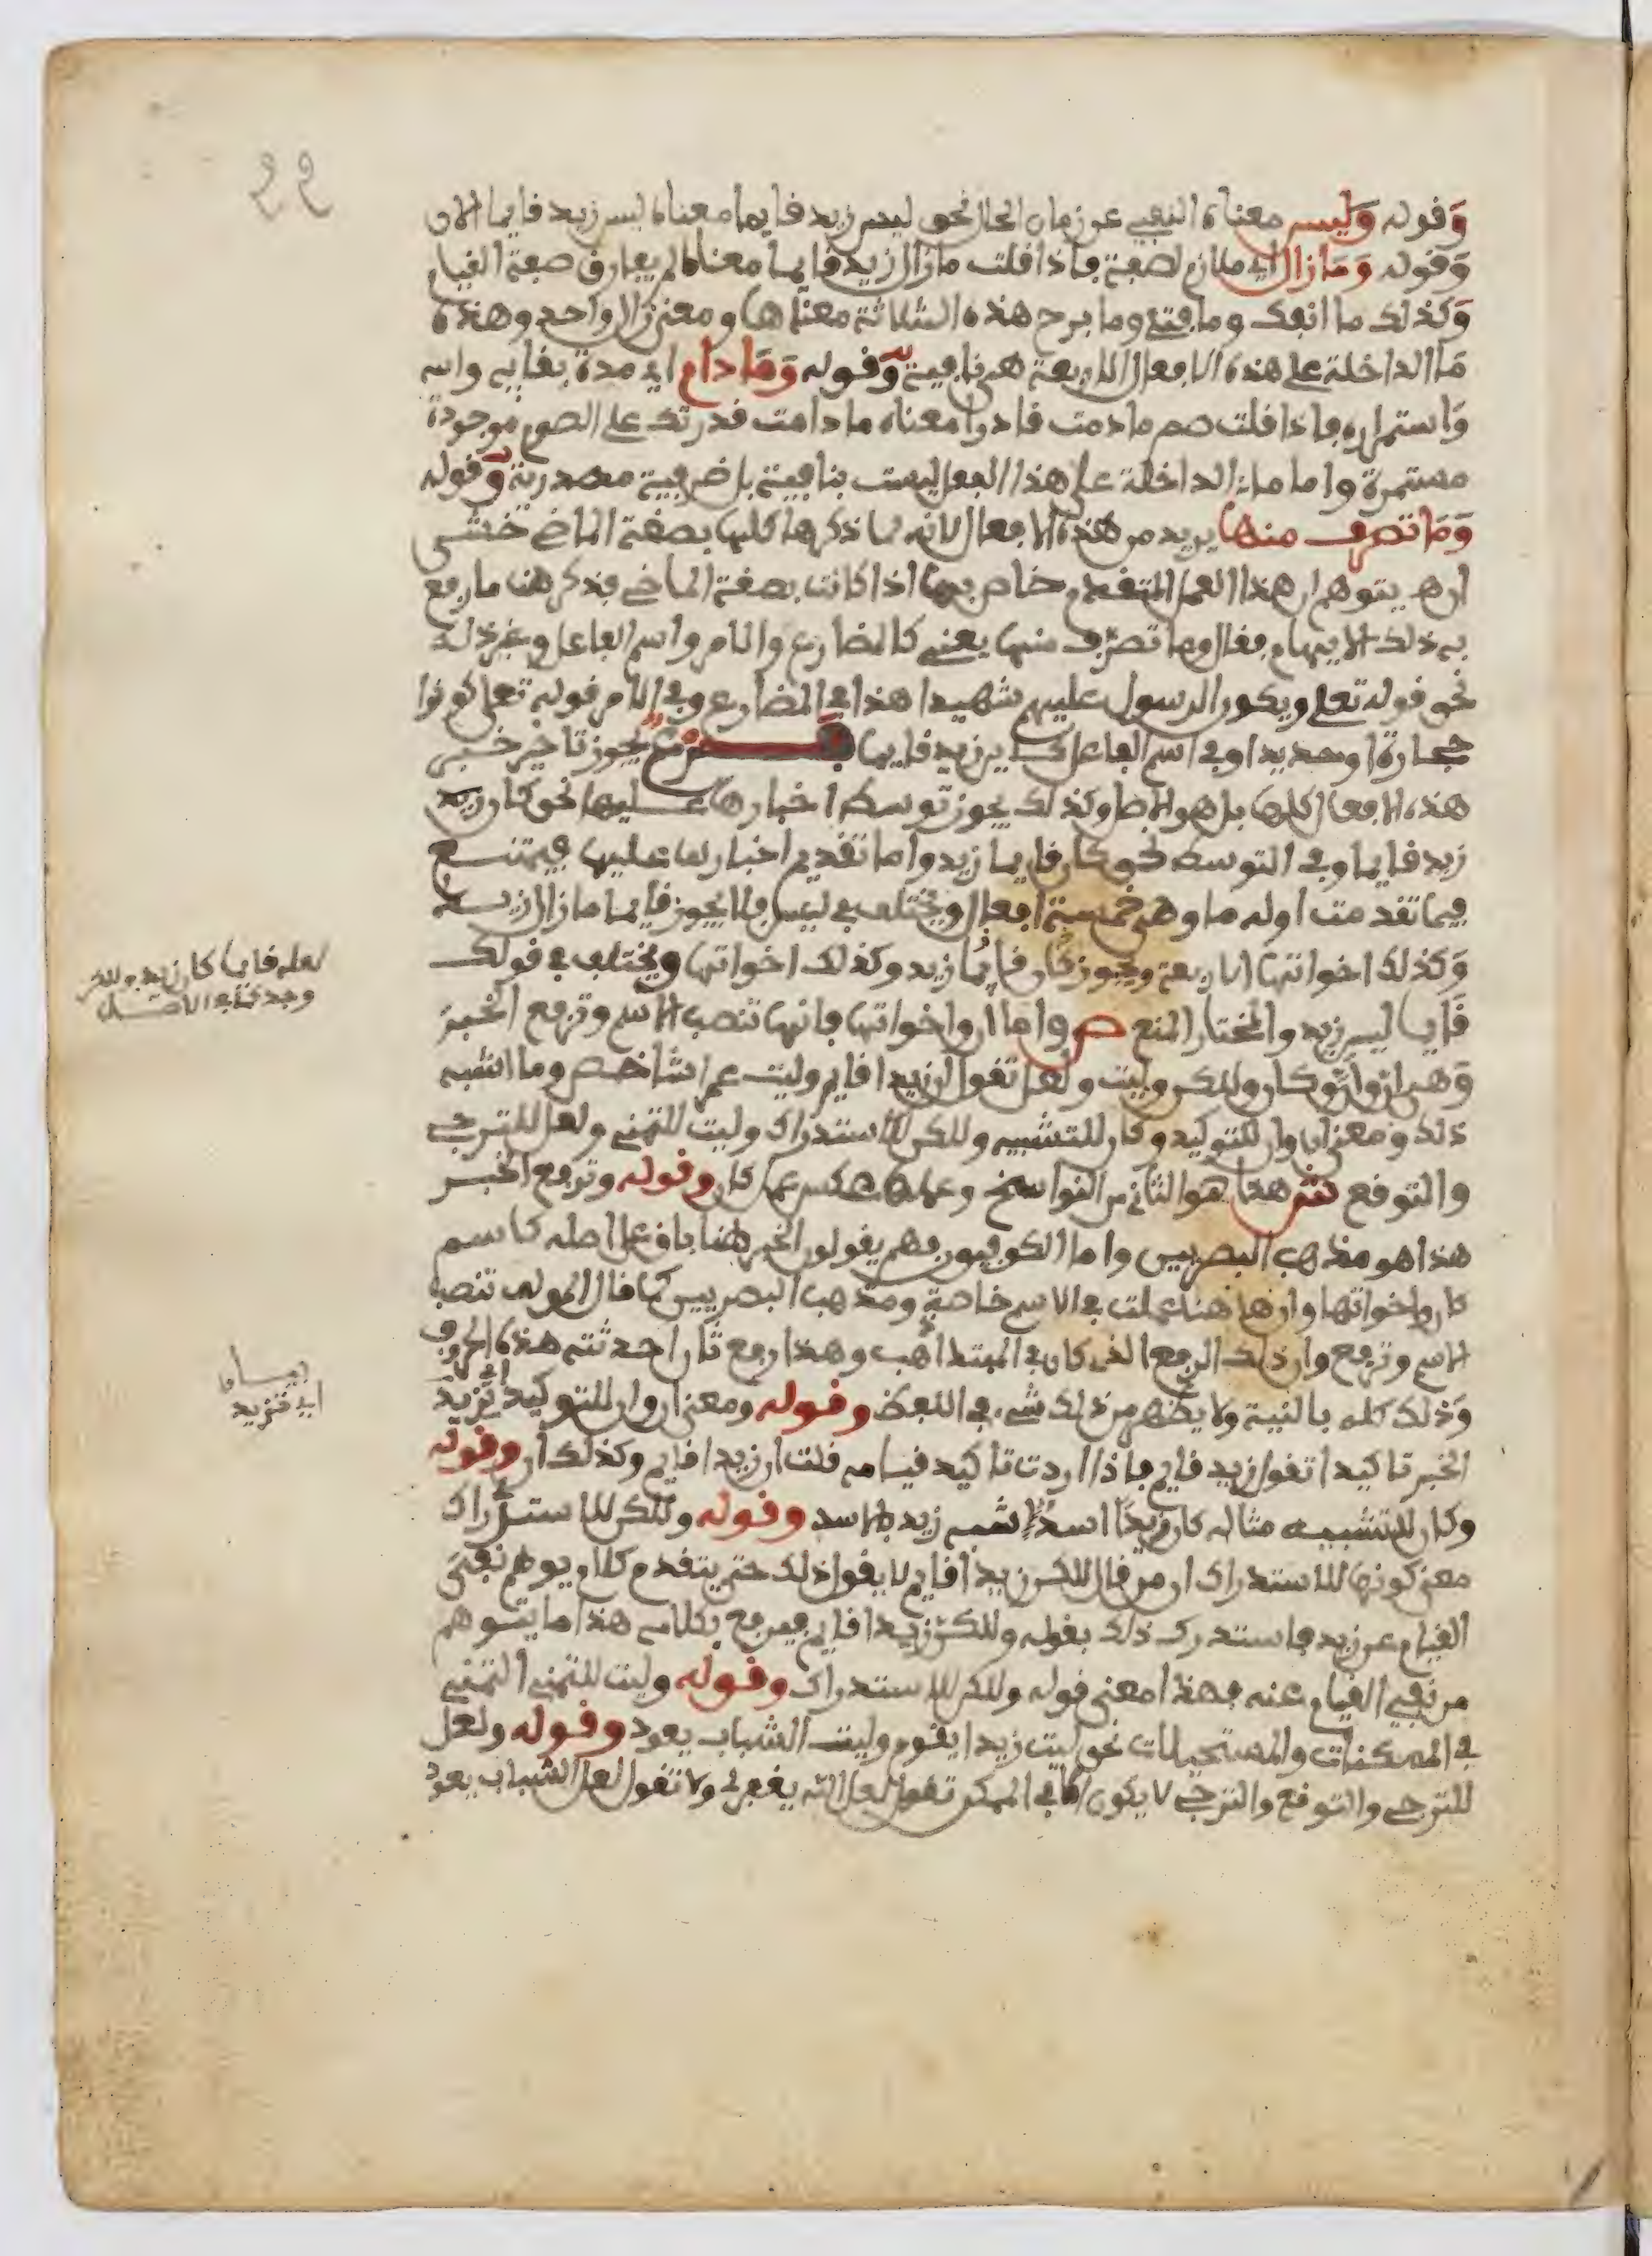 وقوله وليس معناه النفي عن زمان الحال نحو ليس زيد قايما معناه ليس زيد قايما الان
وقوله وما زال اي ملازم لصفة فاذا قلت مازال زيد قايما معناه لم يفارق صفة القيام
وكذلك ما انفك وما فتئ وما برح هذه الثلاثة معناها ومعنى زال واحد وهذه
ما الداخلة على هذه الافعال الاربعة هي نافية وقوله وما دام اي مدة بقايه واس
واستمراره فاذا قلت صم ما دمت قادرا معناه ما دامت قدرتك على الصوم موجودة
مستمرة واما ما الداخلة على هذا الفعل ليست بنافية بل ضرفية مصدرية وقوله
وما تصرف منها يريد من هذه الافعال لانه لما ذكرها كلها بصفة الماضي خشي
ان يتوهم ان هذا العمل المتقدم خاص بها اذا كانت بصفة الماضي فذكر هنا ما رفع
به ذلك الايهام فقال وما تصرف منها يعني كالمضارع والامر واسم الفاعل وغير ذلك
نحو قوله تعلى ويكون الرسول عليهم شهيدا هذا في المضارع وفي الامر قوله تعلى كونوا
حجارة او حديدا وفي اسم الفاعل كاين زيد قايما فرع يجوز تاخير خبر
هذه الافعال كلها بل هو الاصل وكذلك يجوز توسط اخبارها عليها نحو كان زيد
زيد قايما وفي التوسط نحو كان قايما زيد واما تقديم اخبارها عليها فيمتنع
فيما تقدمت اوله ما وهي خمسة افعال ويختلف في ليس فلا يجوز قايما مازال زيد
وكذلك اخواتها الاربعة ويجوز كان قايما زيد وكذلك اخواتها ويختلف في قولك
قايما ليس زيد والمختار المنع ص واما ان واخواتها فانها تنصب الاسم وترفع الخبر
وهي ان وان وكان ولكن وليت ولعل تقول ان زيدا قايم وليت عمرا شاخص وما اشبه
ذلك ومعنى ان وان للتوكيد وكان للتشبيه ولكن للاستدراك وليت للتمني ولعل للترجي
والتوقع ش هذا هو الثاني من النواسخ وعملها عكس عمل كان وقوله وترفع الخبر
هذا هو مذهب البصريين واما الكوفيون فهم يقولون الخبر هنا باق على اصله كاسم
كان واخواتها وان هاهنا عملت في الاسم خاصة ومذهب البصريين كما قال المولف تنصب
الاسم وترفع وان ذلك الرفع الذي كان في المبتدا ذهب وهذا رفع ثان احدثته هذه الحروف
وذلك كله بالنية ولا يظهر من ذلك شيء في اللفظ وقوله ومعنى ان وان للتوكيد اي تزيد
الخبر تاكيدا تقول زيد قايم فاذا اردت تاكيد قيامه قلت ان زيدا قايم وكذلك ان وقوله
وكان للتشبيه مثاله كان زيدا اسد شبه زيد بالاسد وقوله ولكن للاستدراك
معنى كونها للاستدراك ان من قال لكن زيدا قايم لا يقول ذلك حتى يتقدم كلام يوهم نفي
القيام عن زيد فاستدرك ذلك بقوله ولكن زيدا قايم فيرفع بكلامه هذا ما يتوهم
من نفي القيام عنه فهذا معنى قوله ولكن للاستدراك وقوله وليت للتمني التمني
في الممكنات والمستحيلات نحو ليت زيدا يقوم وليت الشباب يعود وقوله ولعل
للترجي والتوقع والترجي لا يكون الا في الممكن تقول لعل الله يغفر لي ولا تقول لعل الشباب يعود
لعله قايما كان زيد ولكن
وجد كذا في الاصل
اي تزيد